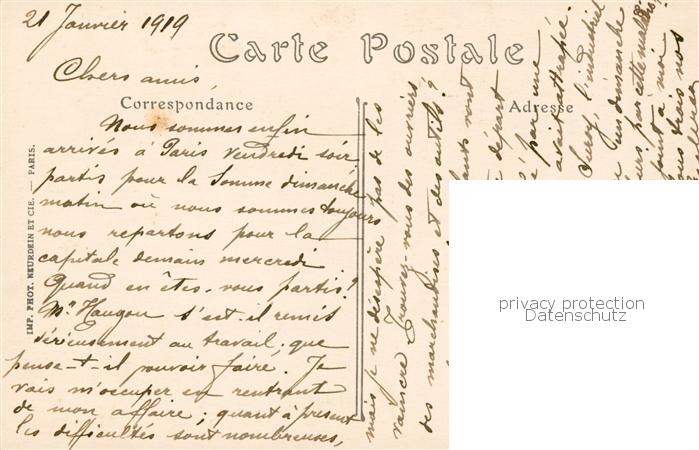 21 Janvier 1919
Carte Postale
Chers amis,
Correspondance
Adresse
Nous sommes enfin
arrivés à Paris Vendredi soir
partis pour la Somme dimanche
matin où nous sommes toujours
nous repartons pour la
capitale demain mercredi
Quand en êtes-vous partis?
Mr Haugou s'est-il remis
sérieusement au travail, que
pense-t-il pouvoir faire. Je
vais m'occuper en rentrant
de mon affaire; quant à présent
les difficultés sont nombreuses,
mais je ne désespère pas de les
vaincre Trouvez-vous des ouvriers,
des marchandises et des outils?
vont
départ
par une
avait attrapée.
l'industriel
un dimanche
par cette
à moi
trois nos
IMP. PHOT. NEURDEIN ET CIE. — PARIS.
privacy protection
Datenschutz